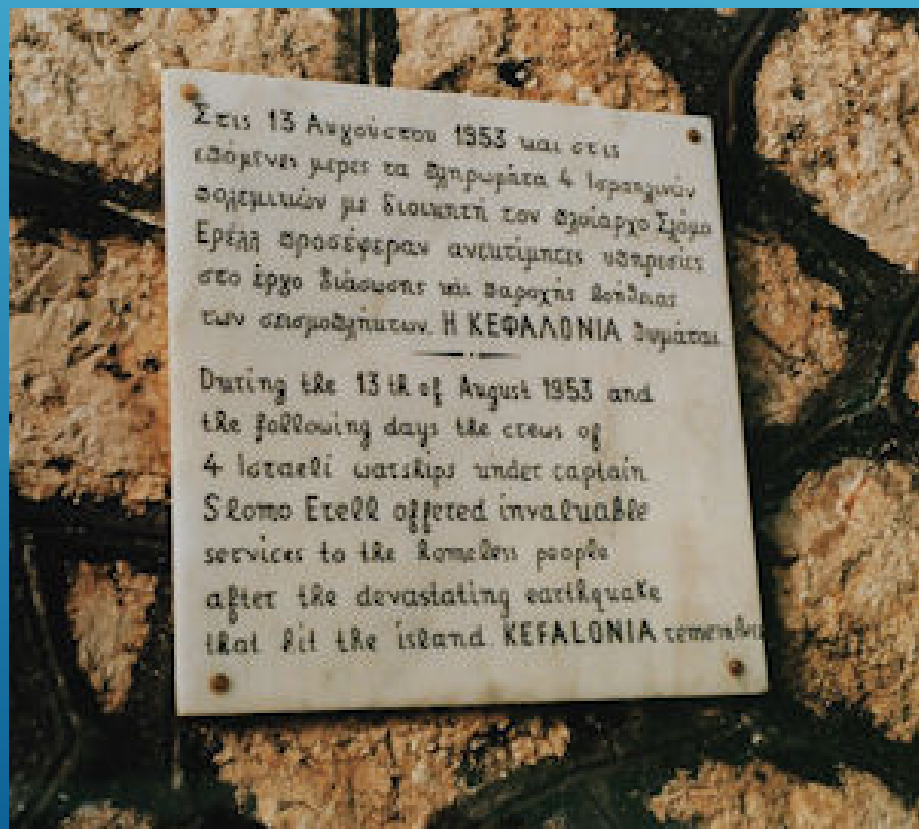 Στις 13 Αυγούστου 1953 και στις
επόμενες μερες τα πληρωμάτα 4 Ισραηλινών
πολεμικών με διοικητή τον πλοίαρχο Σλόμο
Ερέλλ προσέφεραν ανεκτίμητες υπηρεσίες
στο έργο διάσωσης και παροχής βοήθειας
των σεισμοπλήκτων. Η ΚΕΦΑΛΟΝΙΑ θυμάται
During the 13th of August 1953 and
the following days the crews of
4 Israeli warships under captain
Slomo Erell offered invaluable
services to the homeless people
after the devastating earthquake
that hit the island. KEFALONIA remembers